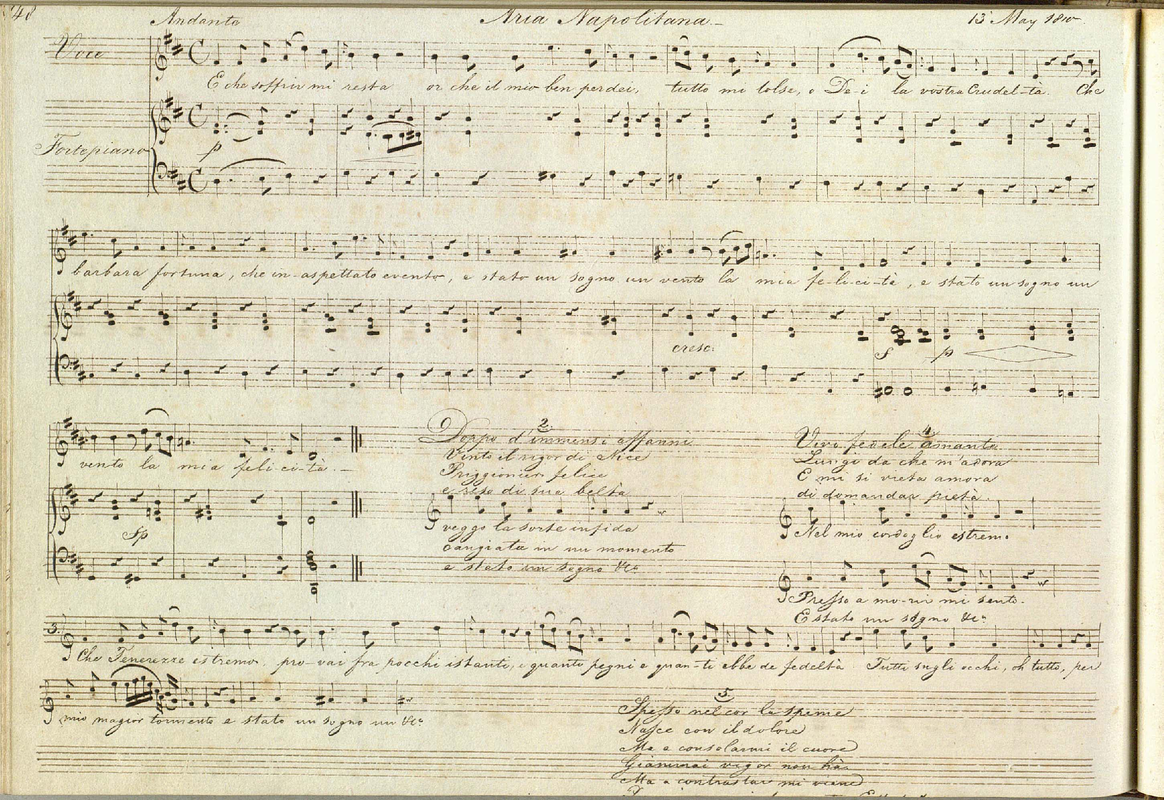 48 Andante Aria Napolitana 13 May
Voce
E che soffrir mi resta or che il mio ben perdei, tutto mi tolse, o De-i la vostra Crudel-tà. Che
Fortepiano
p
barbara fortuna, che in-aspettato evento, e stato un sogno un vento la mia fe-li-ci-tà, e stato un sogno un
cresc:
f p
vento la mia feli-ci-tà.
fp
2
Doppo d'immensi affanni
Vinto il rigor di Nice
Priggionier felice
e reso di sua beltà
veggo la sorte infida
cangiata in un momento
e stato un sogno &c
4
Vivo fedele amante
Lungi da che m'adora
E mi si vieta ancora
di domandar pietà.
Nel mio cordoglio estremo
Presso a mo-rir mi sento.
E stato un sogno &c
3.
Che Tenerezze estreme, pro-vai fra pocchi istanti, e quanti pegni e quan-ti ebbe de fedeltà Tutti sugli occhi, oh tutto, per
mio magior tormento e stato un sogno un &c
5
Spesso nel cor la speme
Nasce con il dolore
Ma a consolarmi il cuore
Giammai vigor non hà
Ma a contrastar mi viene